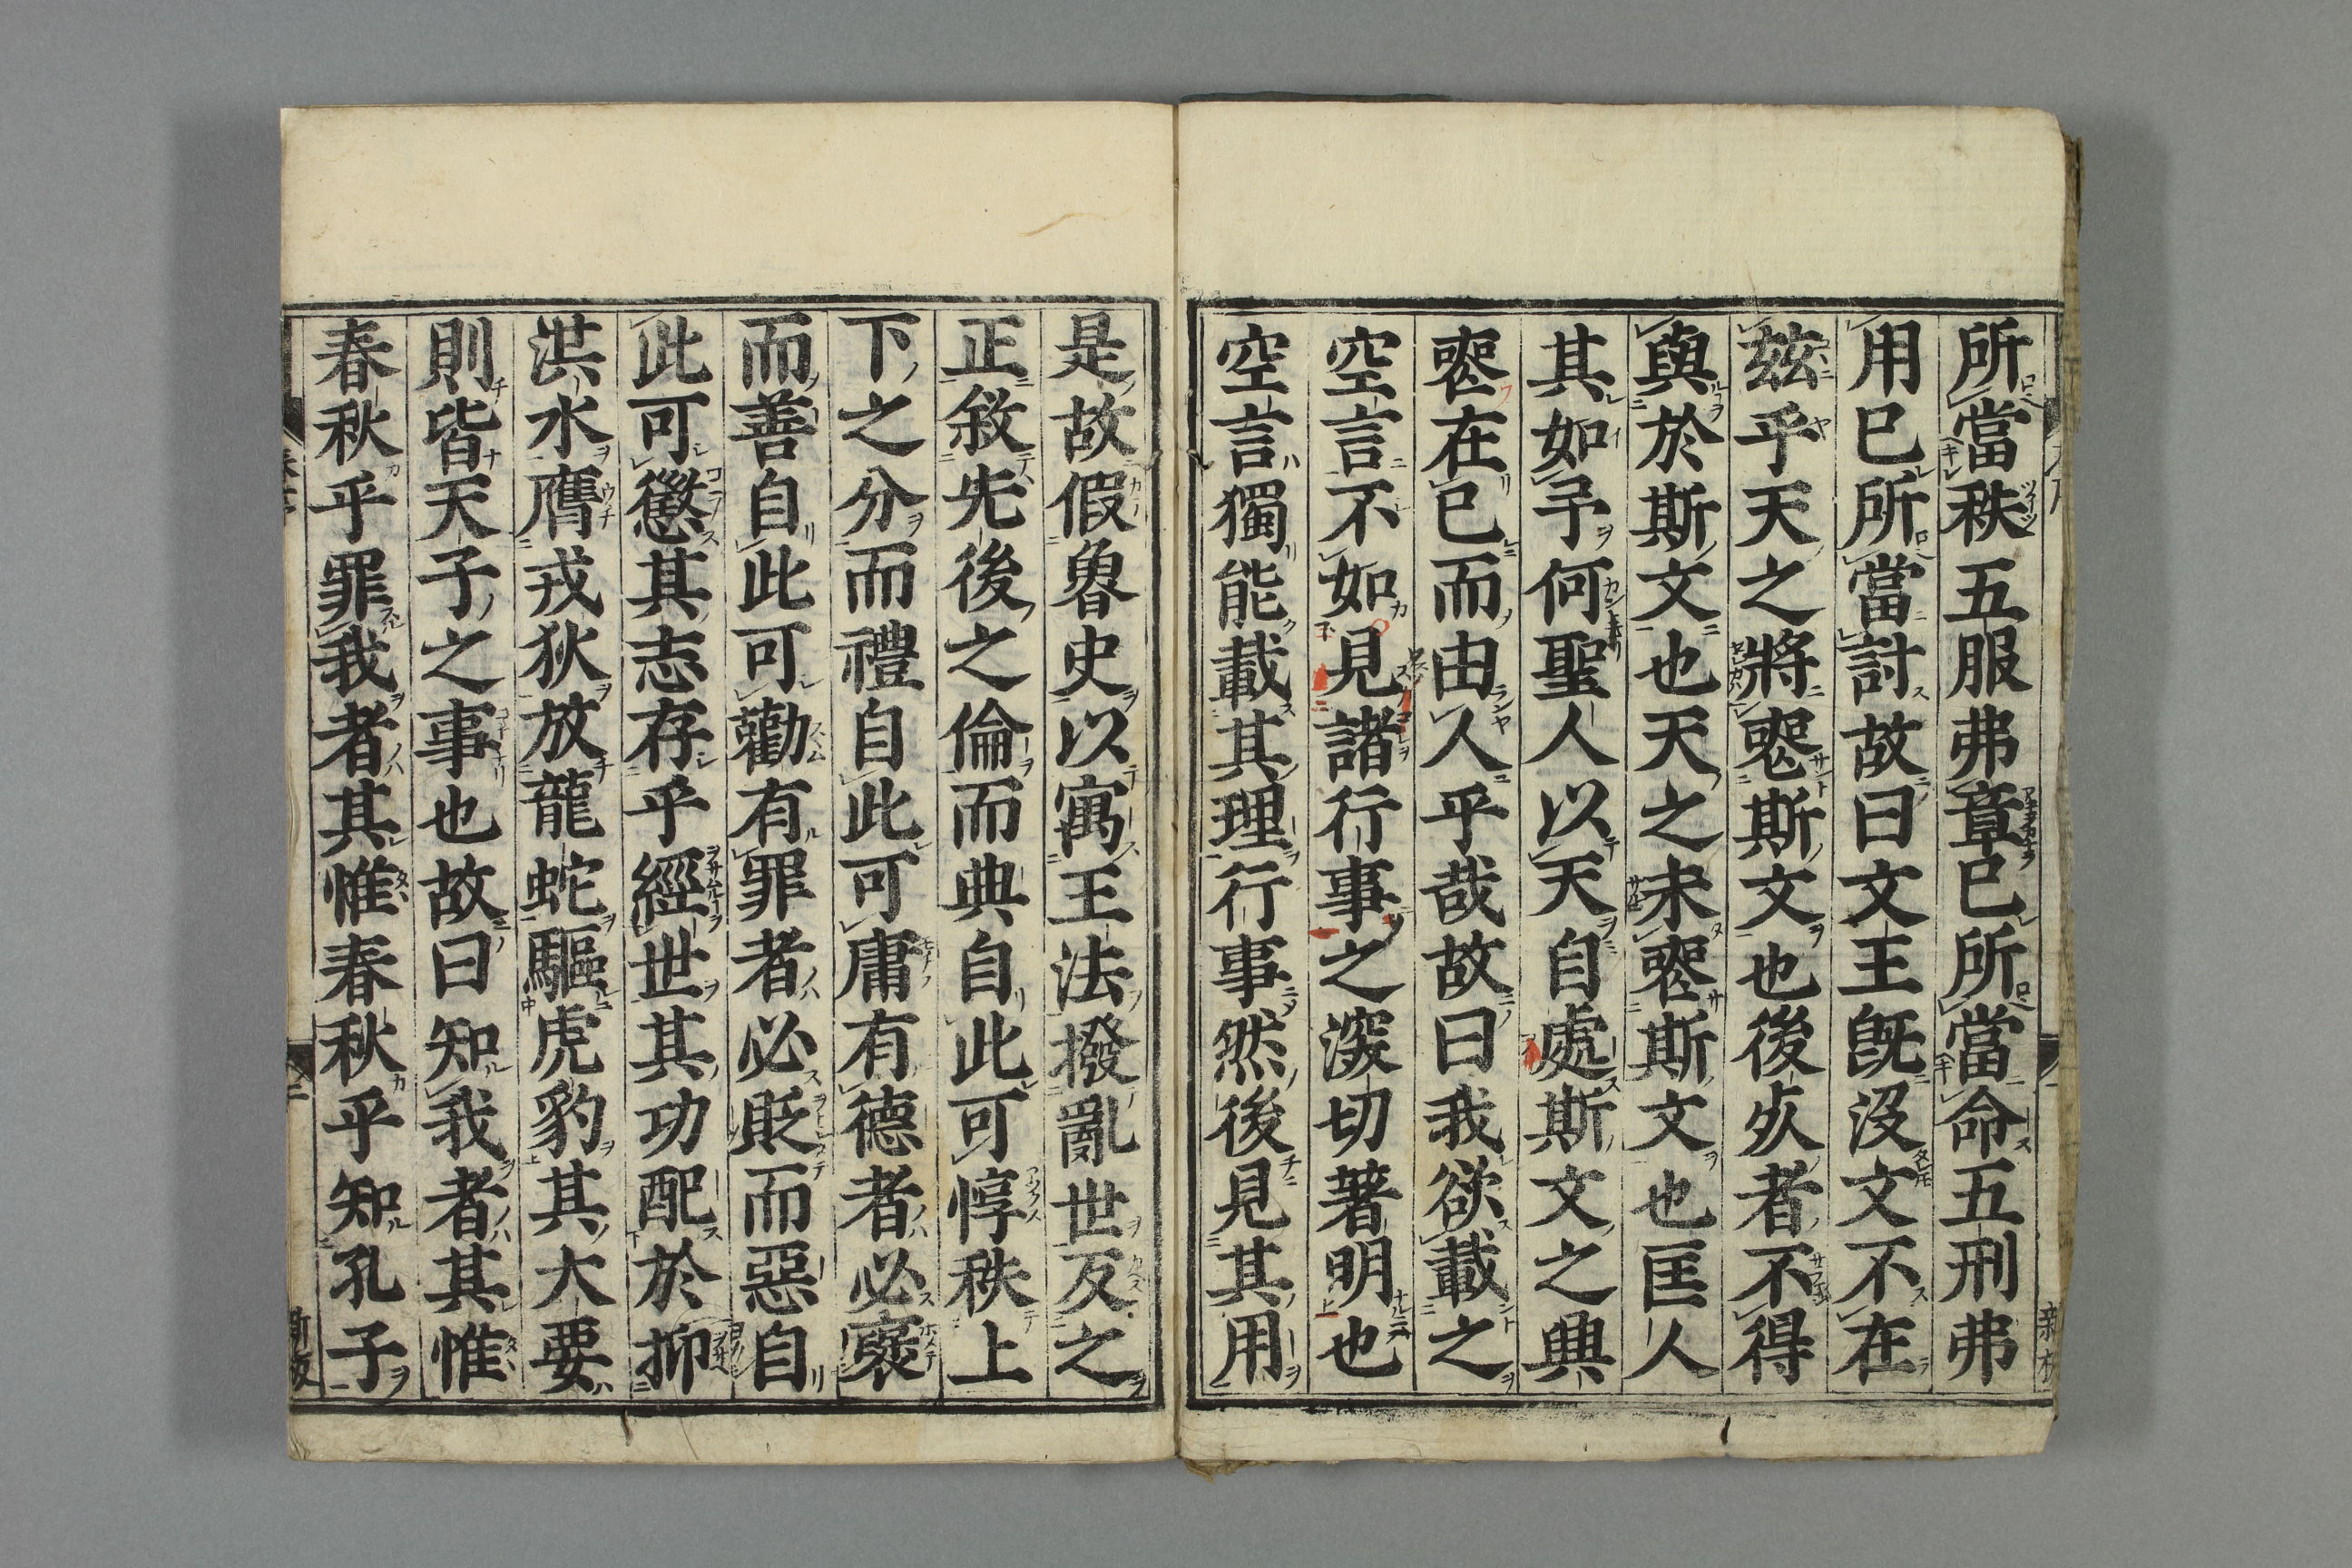 所當秩五服弗章已所當命五刑弗
用已所當討故曰文王旣没文不在
玆乎天之將喪斯文也後死者不得
與於斯文也天之未喪斯文也匡人
其如予何聖人以天自處斯文之興
喪在已而由人乎哉故曰我欲載之
空言不如見諸行事之深切著明也
空言獨能載其理行事然後見其用
是故假魯史以寓王法撥亂世反之
正敘先後之倫而典自此可惇秩上
下之分而禮自此可庸有德者必褒
而善自此可勸有罪者必貶而惡自
此可懲其志存乎經世其功配於抑
洪水膺戎狄放龍蛇驅虎豹其大要
則皆天子之事也故曰知我者其惟
春秋乎罪我者其惟春秋乎知孔子